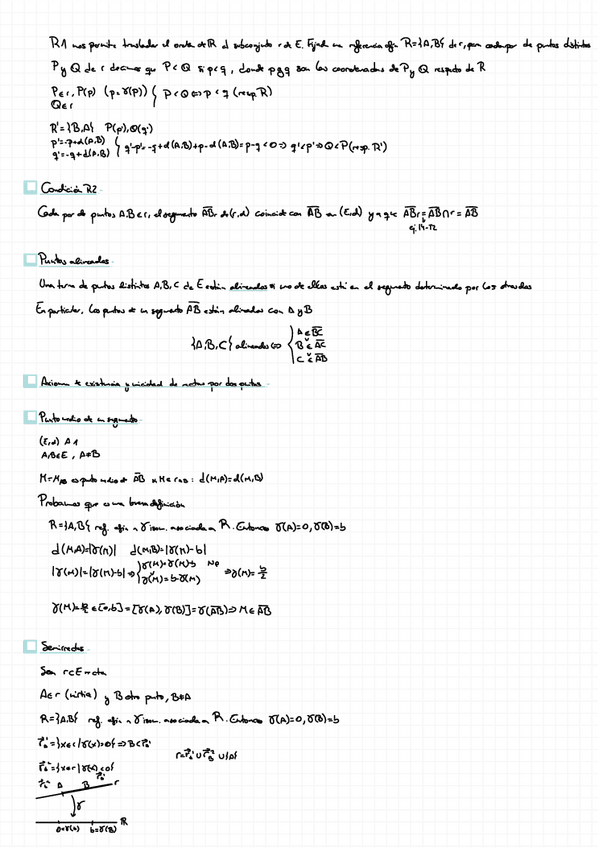 R1 nos permite trasladar el orden de ℝ al subconjunto r de E. Fijada una referencia afín R={A,B} de r, para cada par de puntos distintos
P y Q de r decimos que P<Q si p<q, donde p y q son las coordenadas de P y Q respecto de R
P∈r, P(p) (p=γ(P)) } P<Q ⇔ p<q (resp. R)
Q∈r
R'={B,A} P(p'), Q(q')
p'=-p+d(A,B) } q'-p'=-q+d(A,B)+p-d(A,B)=p-q<0 ⇒ q'<p' ⇒ Q<P (resp. R')
q'=-q+d(A,B)
Condición R2
Cada par de puntos A,B∈r, el segmento AB̅r de (r,d) coincide con AB̅ en (E,d) ya que AB̅r = AB̅∩r = AB̅
ej. 14-T2
Puntos alineados
Una terna de puntos distintos A,B,C de E están alineados si uno de ellos está en el segmento determinado por los otros dos
En particular, los puntos de un segmento AB̅ están alineados con A y B
{A,B,C} alineados ⇔ { A∈BC̅
ó B∈AC̅
ó C∈AB̅
Axioma de existencia y unicidad de rectas por dos puntos
Punto medio de un segmento
(E,d) A1
A,B∈E, A≠B
M=M_AB es punto medio de AB̅ si M∈r_AB : d(M,A)=d(M,B)
Probamos que es una buena definición
R={A,B} ref. afín y γ isom. asociada a R. Entonces γ(A)=0, γ(B)=b
d(M,A)=|γ(M)| d(M,B)=|γ(M)-b|
|γ(M)|=|γ(M)-b| ⇒ { γ(M)=γ(M)-b No
ó γ(M)=b-γ(M) ⇒ γ(M)=b/2
γ(M)=b/2 ∈ [0,b]=[γ(A),γ(B)]=γ(AB̅) ⇒ M∈AB̅
Semirrectas
Sea r⊂E recta
A∈r (vértice) y B otro punto, B≠A
R={A,B} ref. afín y γ isom. asociada a R. Entonces γ(A)=0, γ(B)=b
={x∈r/γ(x)>0} ⇒
={x∈r/γ(x)<0}
A B r
γ
0=γ(A) b=γ(B) ℝ